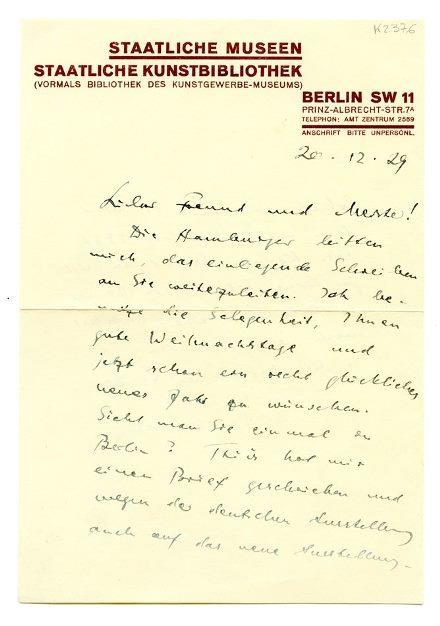 K2376
STAATLICHE MUSEEN
STAATLICHE KUNSTBIBLIOTHEK
(VORMALS BIBLIOTHEK DES KUNSTGEWERBE-MUSEUMS)
BERLIN SW 11
PRINZ-ALBRECHT-STR.7A
TELEPHON: AMT ZENTRUM 2569
ANSCHRIFT BITTE UNPERSÖNL.
20. 12. 29
Lieber Freund und Meister!
Die Hamburger bitten
mich, das einliegende Schreiben
an Sie weiterzuleiten. Ich be-
nütze die Gelegenheit, Ihnen
gute Weihnachtstage und
jetzt schon ein recht glückliches
neues Jahr zu wünschen.
Sieht man Sie einmal in
Berlin? hat mir
einen Brief geschrieben und
wegen der deutschen Ausstellung
auch auf das neue Ausstellung-